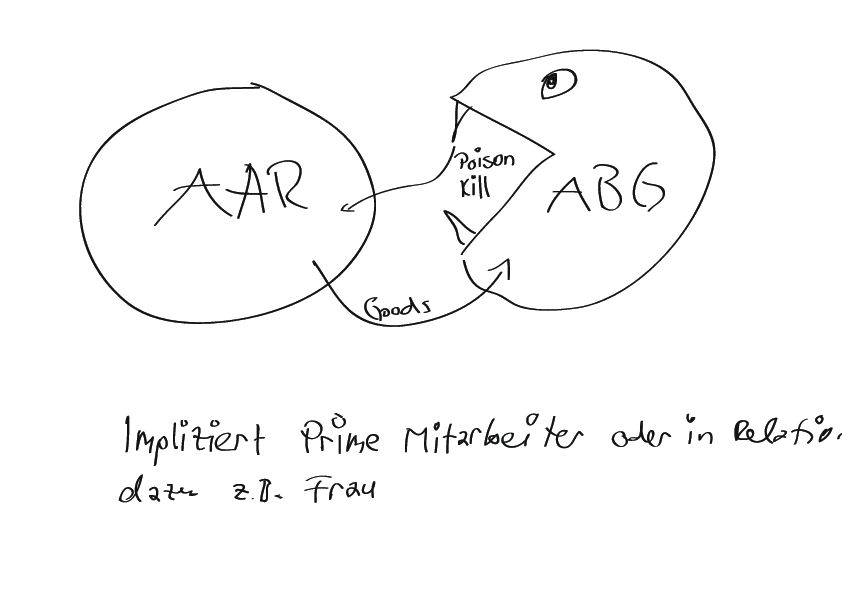 AAR
Poison
Kill
ABG
Goods
Impliziert Prime Mitarbeiter oder in Relation
dazu z.B. Frau